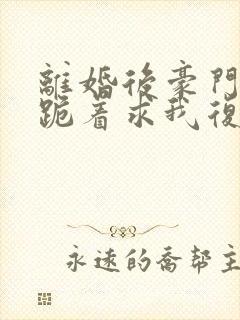 離婚後豪門
跪着求我復
永遠的喬幫主